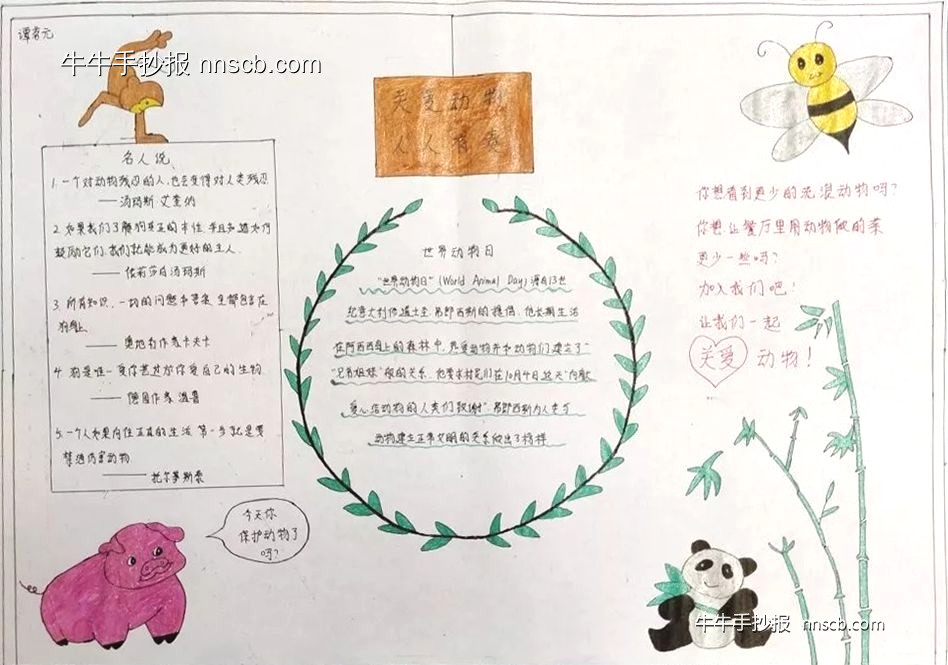 谭睿元
牛牛手抄报 nnscb.com
关爱动物
人人有责
名人说
1.一个对动物残忍的人,也会变得对人类残忍
——汤玛斯·艾奎纳
2.如果我们了解狗真正的本性,并且知道如何
鼓励它们,我们就能成为更好的主人。
——依莉莎白汤玛斯
3.所有知识,一切的问题和答案,全都包含在
狗身上
——奥地利作家卡夫卡
4.狗是唯一爱你甚过你爱自己的生物.
——德国作家 温鲁
5.一个人如果向往正直的生活,第一步就是要
禁绝伤害动物
——托尔事斯泰
今天你
保护动物了
吗?
世界动物日
"世界动物日"(World Animal Day)源自13世
纪意大利传道士圣·弗朗西斯的提倡,他长期生活
在阿西西岛上的森林中,热爱动物并和动物们建立了"
"兄弟姐妹"般的关系,他要求村民们在10月4日这天"向献
爱心给动物的人类们致谢"弗朗西斯为人类与
动物建立正常文明的关系做出了榜样
你想看到更少的流浪动物吗?
你想让餐厅里用动物做的菜
更少一些吗?
加入我们吧!
让我们一起
关爱 动物!
牛牛手抄报 nnscb.com